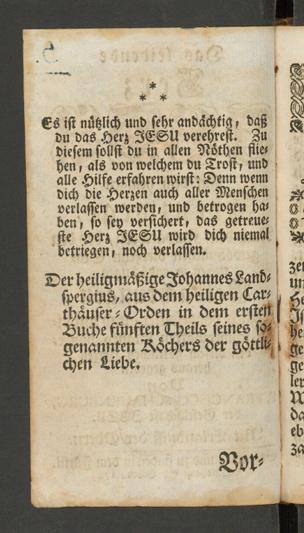 * * *
Es ist nützlich und sehr andächtig, daß
du das Herz JESU verehrest. Zu
diesem sollst du in allen Nöthen flie-
hen, als von welchem du Trost, und
alle Hilfe erfahren wirst: Denn wenn
dich die Herzen auch aller Menschen
verlassen werden, und betrogen ha-
ben, so sey versichert, das getreue-
ste Herz JESU wird dich niemal
betriegen, noch verlassen.
Der heiligmäßige Johannes Land-
spergius, aus dem heiligen Car-
thäuser-Orden in dem ersten
Buche fünften Theils seines so-
genannten Köchers der göttli-
chen Liebe.
Vor-